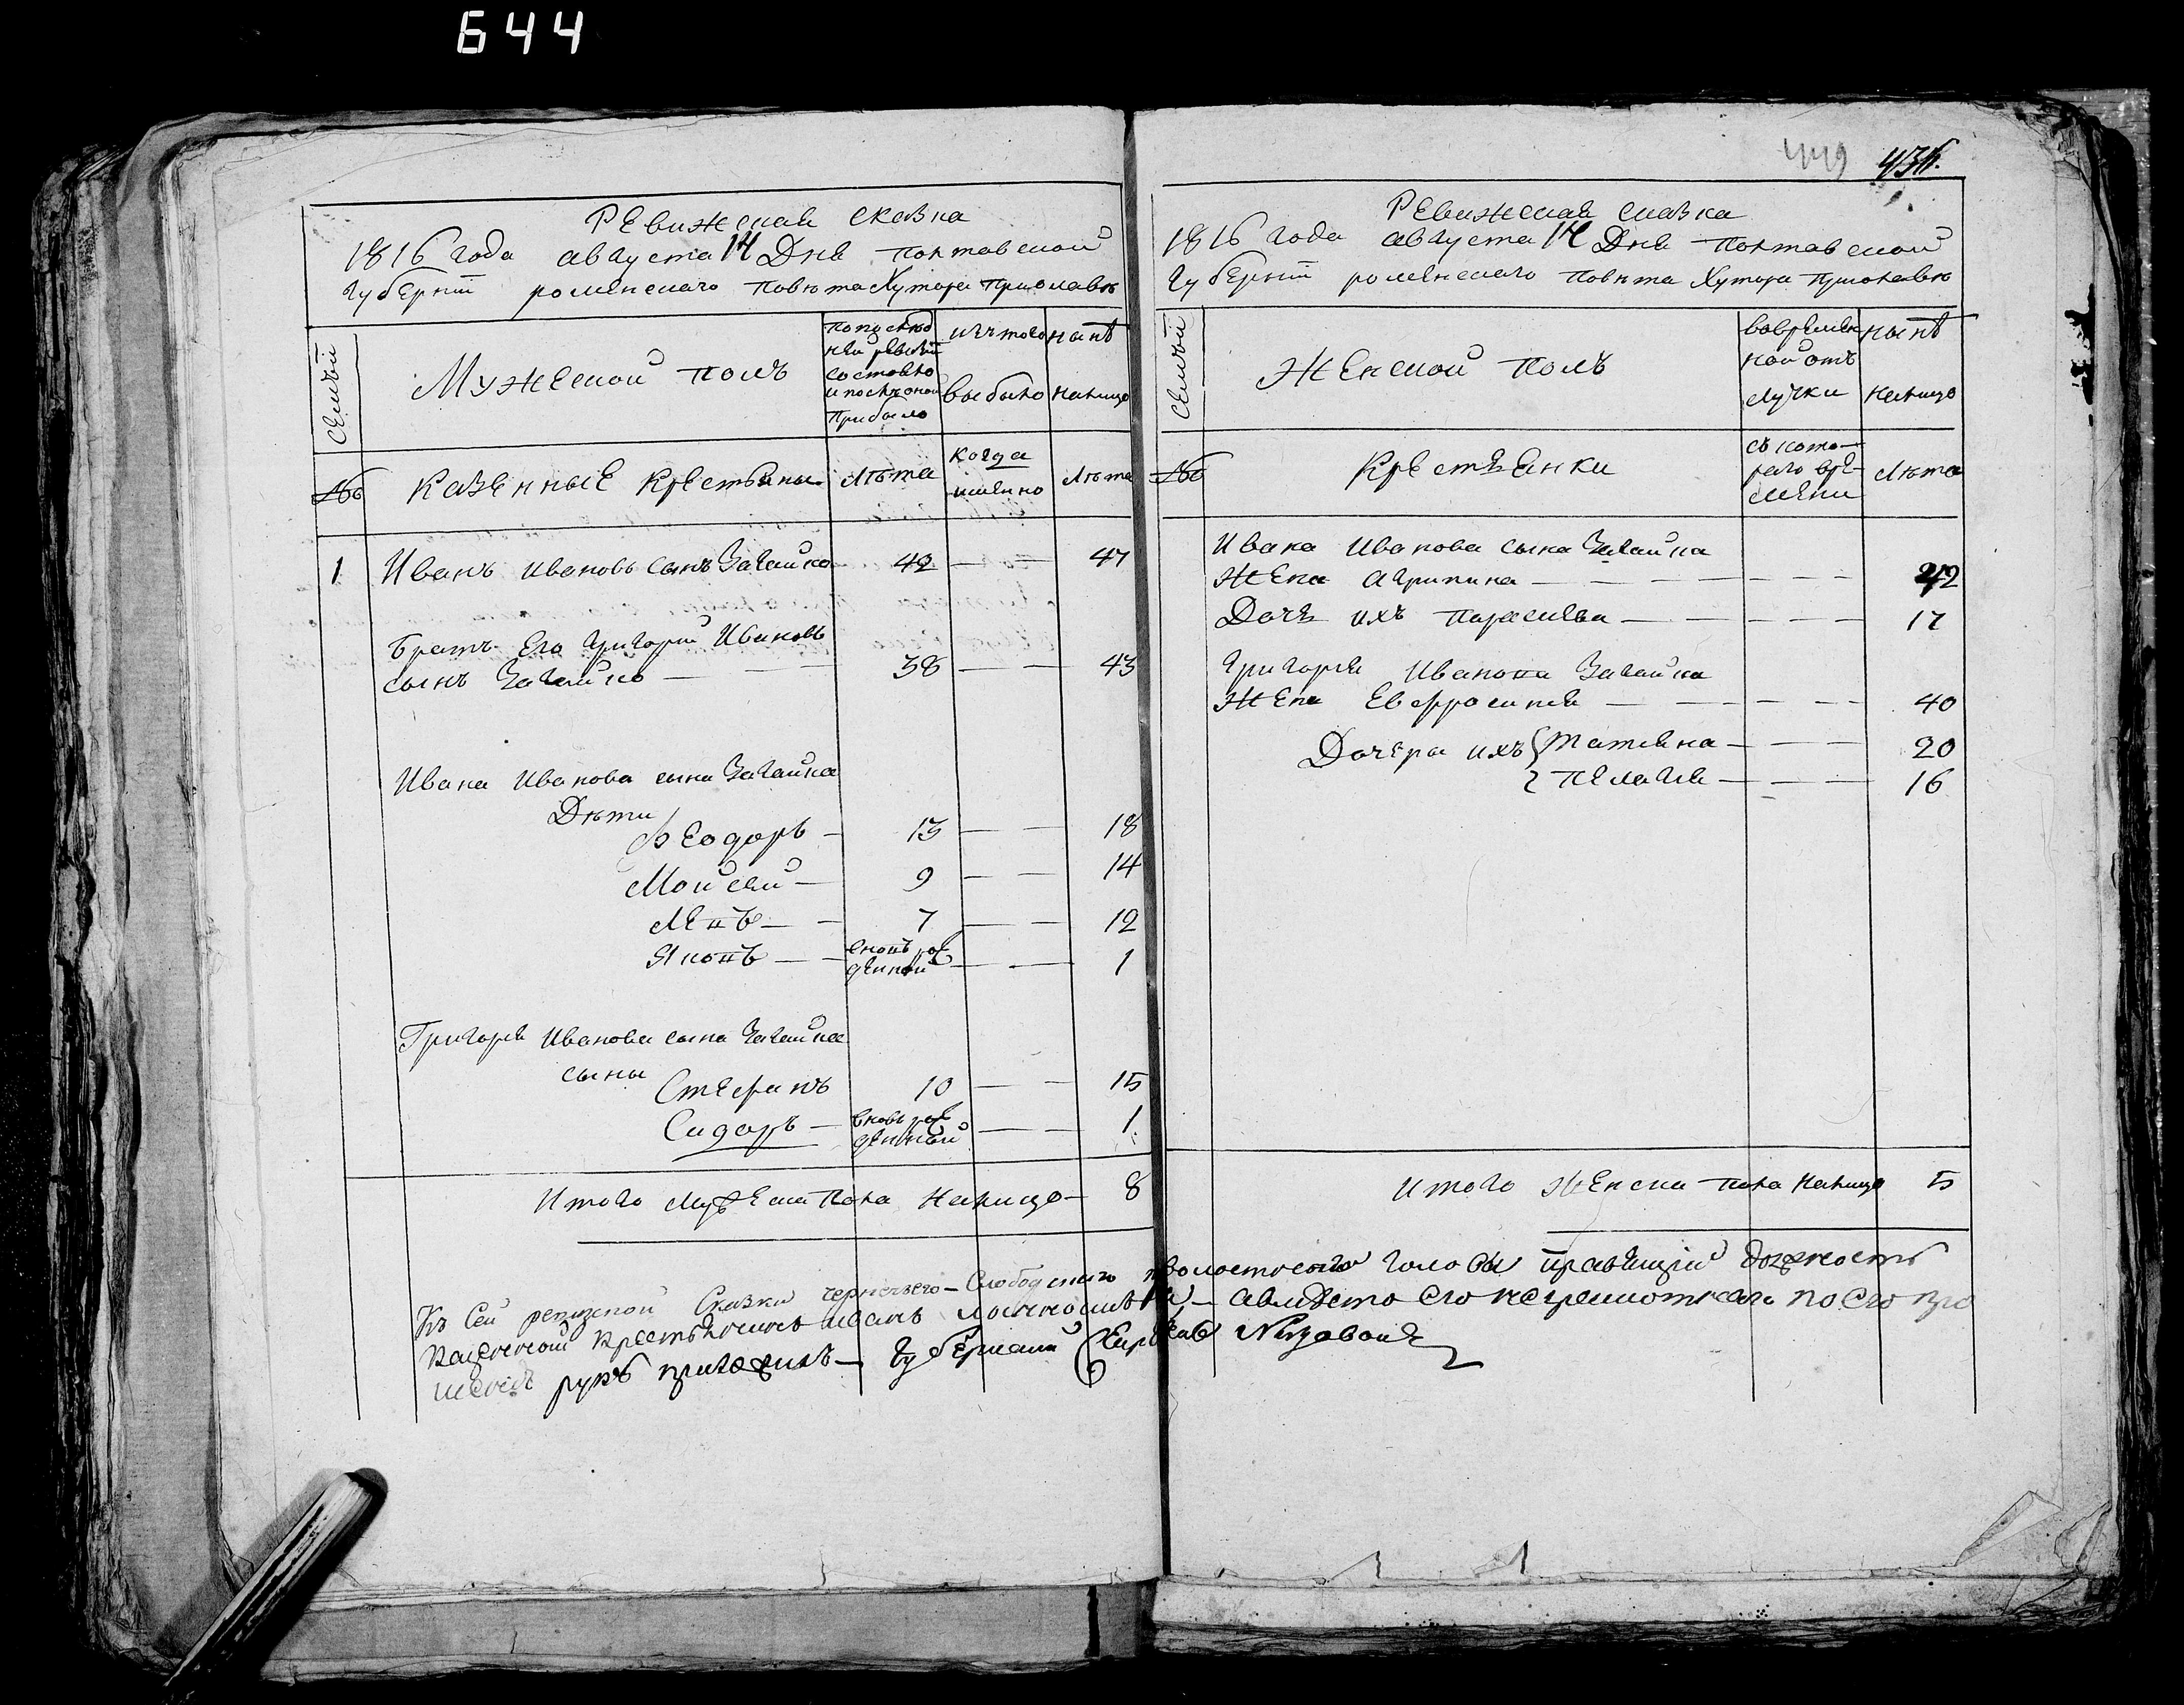 644
449
Ревижская сказка
1816 года августа 14 Дня Полтавской
губернии роменского повета Хутора
Семьи
Мужеской полъ
по последней ревизии состояло и после оной прибыло
изъ того выбыло
ныне налицо
№
Казенные Крестьяне
Лета
Когда имянно
Лета
1 Иванъ Ивановъ сынъ Загайко 42 — — 47
Братъ Его Григорий Ивановъ
сынъ Загайко — — 38 — — 43
Ивана Иванова сына Загайка
Дети
Феодоръ — 13 — — 18
Мойсей — 9 — — 14
Лепъ — — 7 — — 12
Яковъ — — вновь рожденной — — 1
Григорія Иванова сына Загайка
сыны
Стефанъ 10 — — 15
Сидоръ — вновь рожденной — — 1
Итого Мужеска Пола Налицо — 8
Ревижская сказка
1816 года августа 14 Дня Полтавской
губернии роменского повета Хутора
Семьи
Женской полъ
во временной отлучки
ныне налицо
№
Крестьянки
съ которого времени
Лета
Ивана Иванова сына Загайка
Жена Агрипина — — — — — 42
Дочь ихъ Параскева — — — — 17
Григорія Иванова Загайка
Жена Евфросинія — — — — 40
Дочери ихъ Татияна — — — 20
Пелагия — — — 16
Итого Женска пола Налицо 5
Къ сей ревизской Сказки Чернечего-Слободского волостного головы правящий должность
казенной крестьянинъ Иванъ — а вместо его неграмотного по его про
шению руку приложилъ — Губернский